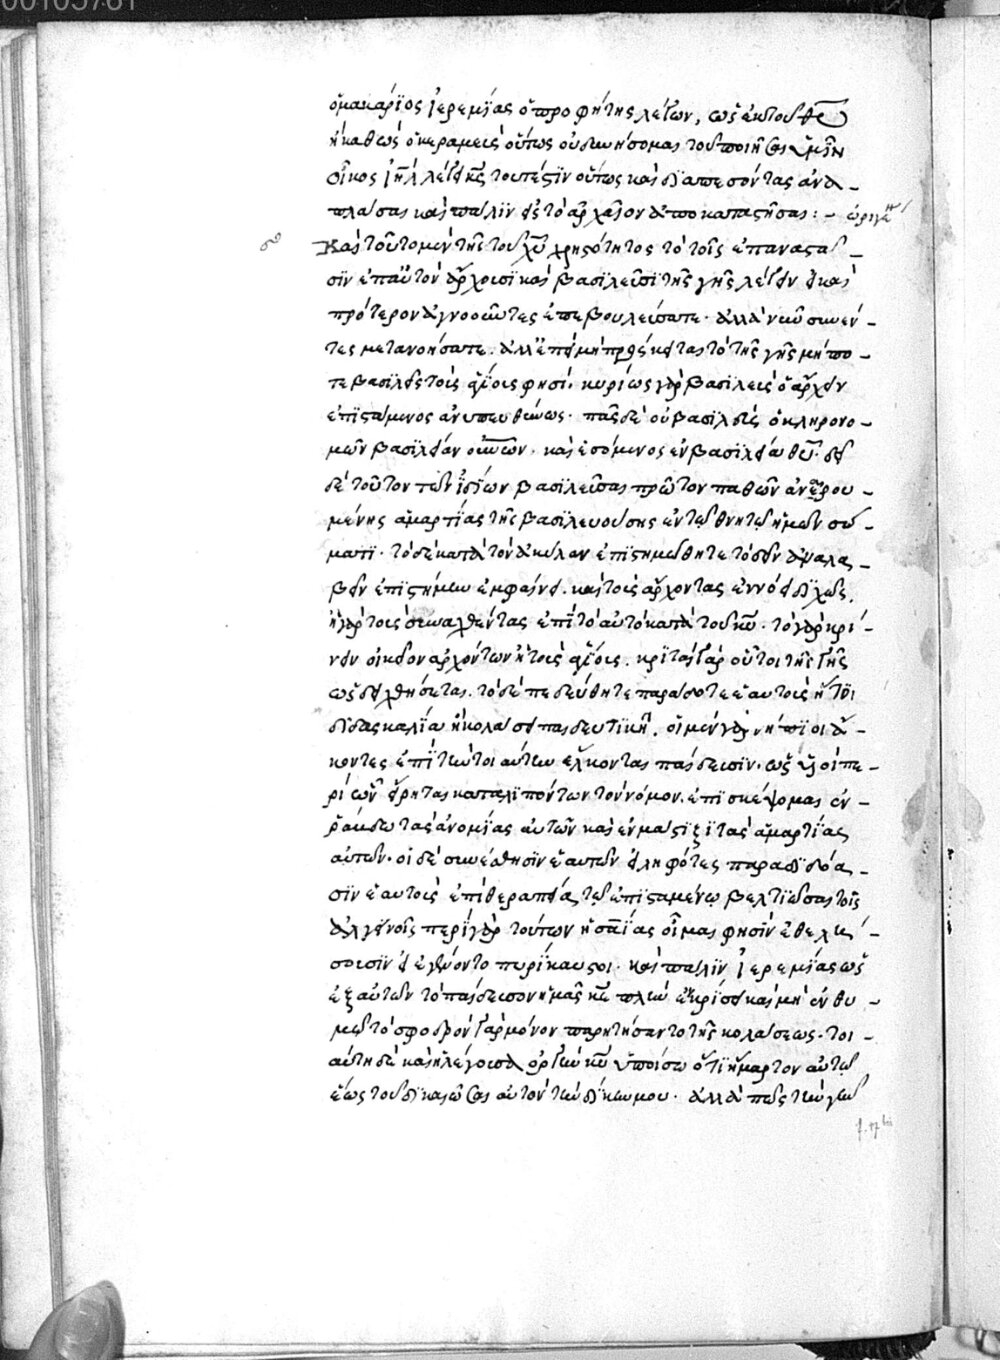 00105761
ὁ μακάριος ἱερεμίας ὁ προφήτης λέγων, ὡς ἐκ τοῦ θῦ
ἢ καθὼς ὁ κεραμεὺς οὕτως οὐ δυνήσομαι τοῦ ποιῆσαι ὑμῖν
οἶκος ἰηλ λέγει κς τουτέστιν οὕτως καὶ διαπεσόντας ἀνα-
πλάσαι καὶ πάλιν εἰς τὸ ἀρχαῖον ἀποκαταστῆσαι: - ὠριγέν
Καὶ τοῦτο μὲν τῆς τοῦ χυ χρηστότητος τὸ τοῖς ἐπαναστᾶ-
σιν ἐπ' αὐτὸν ἄρχουσι καὶ βασιλεῦσι τῆς γῆς λέγειν εἰ καὶ
πρότερον ἀγνοοῦντες ἐπεβουλεύσατε. ἀλλὰ νῦν συνέν-
τες μετανοήσατε. ἀλλ' ἐπεὶ μὴ πρόσκειται τὸ τῆς γῆς μήπο-
τε βασιλεῖς τοὺς ἁγίους φησί. κυρίως γὰρ βασιλεὺς ὁ ἄρχειν
ἐπιστάμενος ἀνυπευθύνως. πᾶς δὲ οὐ βασιλεὺς ὁ κληρονο-
μῶν βασιλείαν οὐνῶν. καὶ ἐσόμενος ἐν βασιλείᾳ θυ. δεῖ
δὲ τοῦτον τῶν ἰδίων βασιλεῦσαι πρῶτον παθῶν ἀνῃρη-
μένης ἁμαρτίας τῆς βασιλευούσης ἐν τῷ θνητῷ ἡμῶν σώ-
ματι. τὸ δὲ κατὰ τὸν ἀκύλαν ἐπιστημώθητε τὸ δεῖν ἀναλα-
βεῖν ἐπιστήμην ἐμφαίνει. καὶ τοὺς ἄρχοντας ἐννόει διχῶς.
ἢ γὰρ τοὺς συναχθέντας ἐπὶ τὸ αὐτὸ κατὰ τοῦ κυ. τὸ γὰρ κρί-
νειν οἰκεῖον ἀρχόντων ἢ τοὺς ἁγίους. κριταὶ γὰρ οὗτοι τῆς γῆς
ὡς δειχθήσεται. τὸ δὲ παιδεύθητε παράδοτε ἑαυτοὺς ἤτοι
διδασκαλίᾳ ἢ κολάσει παιδευτικῇ. οἱ μὲν γὰρ νήπιοι ἄ-
κοντες ἐπὶ τὴν τοιαύτην ἕλκονται παίδευσιν. ὡς υἱοὶ πε-
ρὶ ὧν εἴρηται καταλιπόντων τὸν νόμον. ἐπισκέψομαι ἐν
ῥάβδῳ τὰς ἀνομίας αὐτῶν καὶ ἐν μάστιξι τὰς ἁμαρτίας
αὐτῶν. οἱ δὲ συναίσθησιν ἑαυτῶν εἰληφότες παραδιδόα-
σιν ἑαυτοὺς ἐπὶ θεραπείᾳ τῷ ἐπισταμένῳ βελτιῶσαι τοῖς
ἀλγεινοῖς περὶ γὰρ τούτων ἡσαΐας οἶμαι φησὶν ἐθελή-
σουσιν εἰ ἐγένοντο πυρίκαυστοι. καὶ πάλιν ἱερεμίας ὡς
ἐξ αὐτῶν τὸ παίδευσον ἡμᾶς κε πλὴν ἐν κρίσει καὶ μὴ ἐν θυ-
μῷ τὸ σφοδρὸν γὰρ μόνον παρῃτήσαντο τῆς κολάσεως. τοι-
αύτη δὲ καὶ ἡ λέγουσα ὀργὴν κυ ὑποίσω ὅτι ἥμαρτον αὐτῷ
ἕως τοῦ δικαιῶσαι αὐτὸν τὴν δίκην μου. ἀλλὰ πῶς τὴν γῆν
f. 17 bis